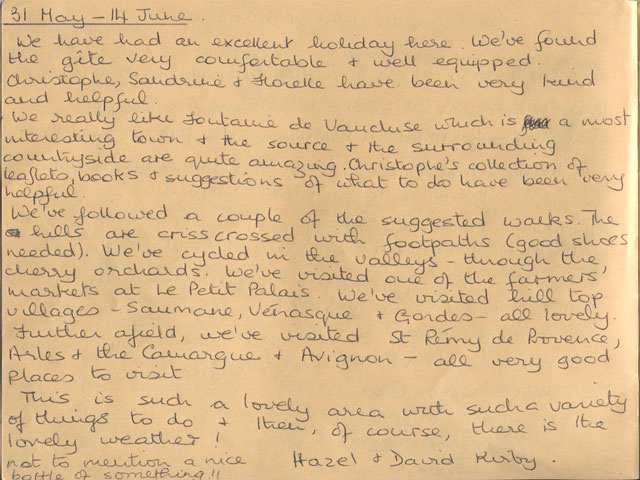 31 May – 14 June.
We have had an excellent holiday here. We've found
the gîte very comfortable & well equipped.
Christophe, Sandrine & Florelle have been very kind
and helpful.
We really like Fontaine de Vaucluse which is a most
interesting town & the source & the surrounding
countryside are quite amazing. Christophe's collection of
leaflets, books & suggestions of what to do have been very
helpful.
We've followed a couple of the suggested walks. The
hills are crisscrossed with footpaths (good shoes
needed). We've cycled in the valleys - through the
cherry orchards. We've visited one of the farmers'
markets at Le Petit Palais. We've visited hill top
villages - Saumane, Vénasque & Gordes - all lovely.
Further afield, we've visited St Rémy de Provence,
Arles & the Camargue & Avignon - all very good
places to visit
This is such a lovely area with such a variety
of things to do & then, of course, there is the
lovely weather!
not to mention a nice Hazel & David Kirby.
bottle of something!!